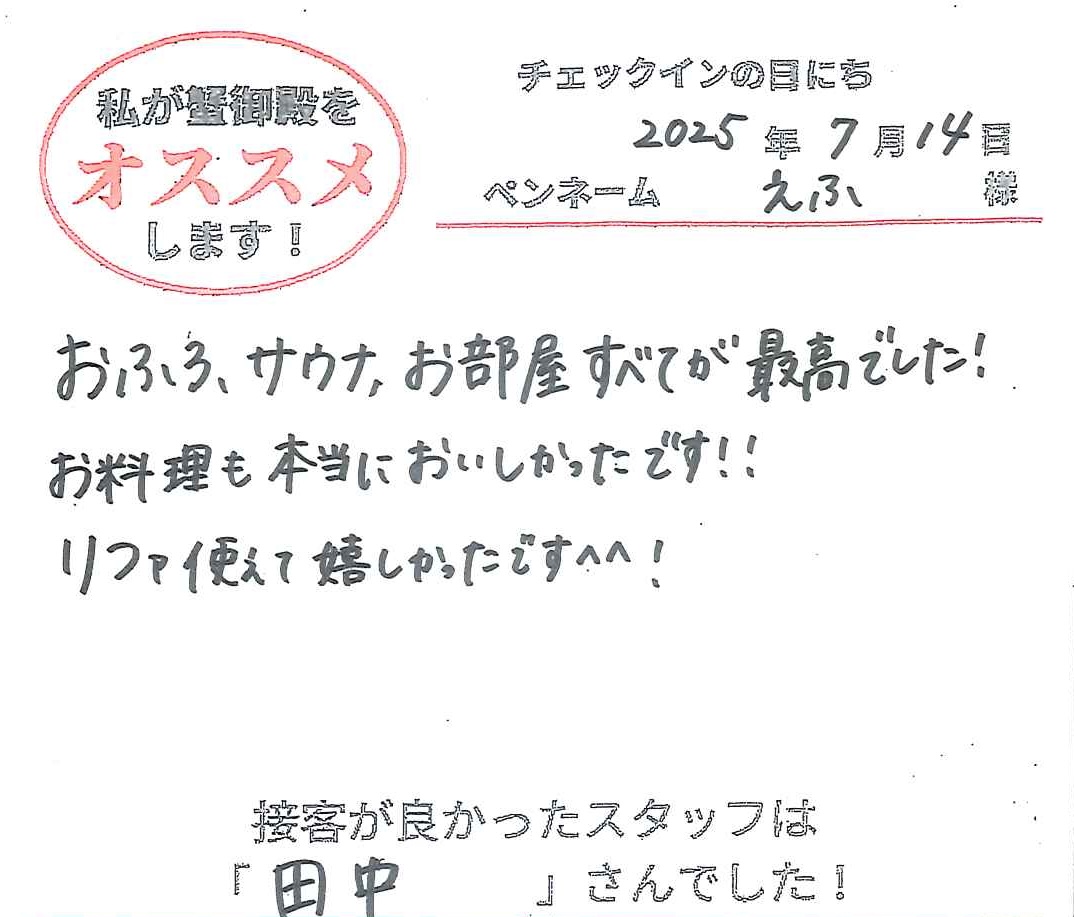 私が蟹御殿を
オススメ
します！
チェックインの日にち
2025年7月14日
ペンネーム えふ 様
おふろ、サウナ、お部屋すべてが最高でした!
お料理も本当においしかったです!!
リファ使えて嬉しかったです^^!
接客が良かったスタッフは
「田中」さんでした！